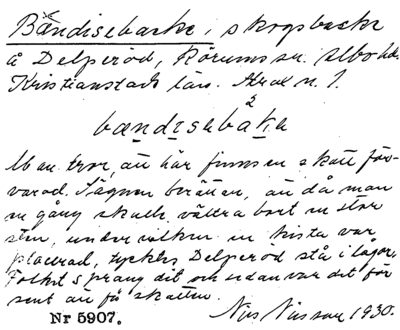 Bändisebacke i skogsbacke
å Delperöd, Rörums sn. Albo hd.
Kristianstads län. Axel n. 1.
bændisebake
Man tror, att här finns en skatt för-
varad. Sägnen berättar, att då man
en gång skulle vältra bort en stor
sten, under vilken en kista var
placerad, tycktes Delperöd stå i lågor.
Folket sprang dit om sedan var det för
sent att få skatten.
Nr 5907. Nils Nilsson 1930.